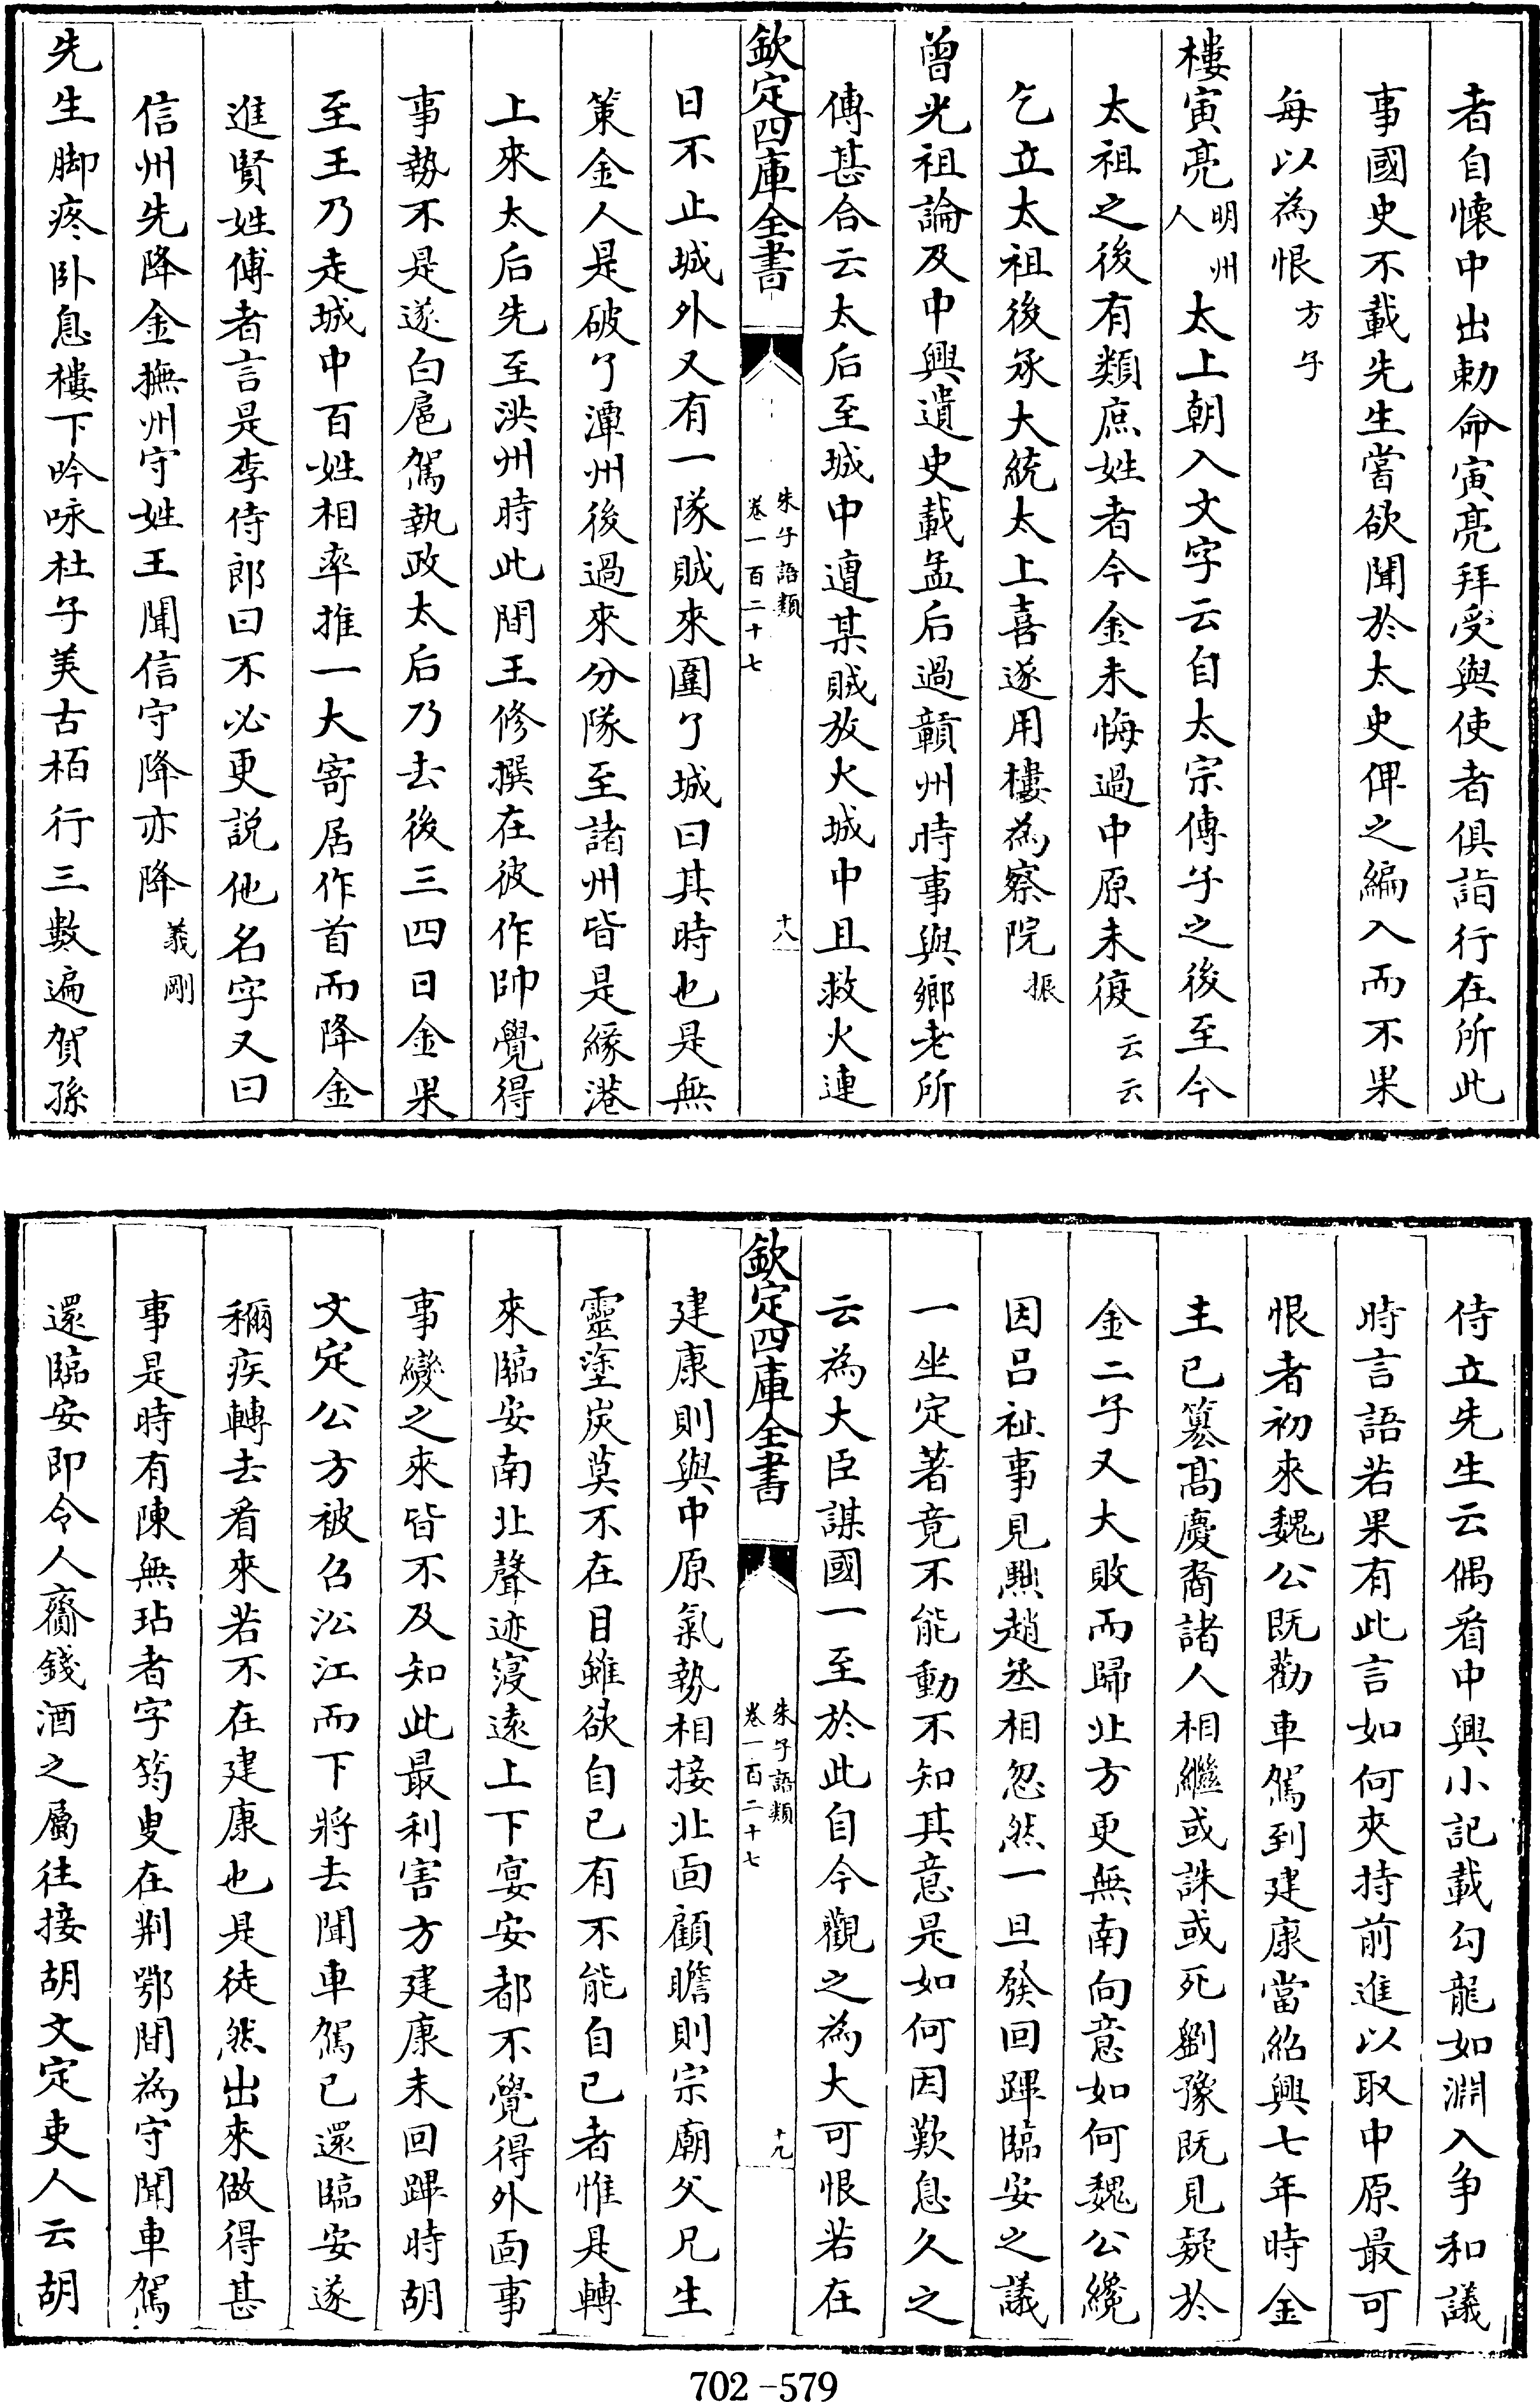 者自懷中出勅命寅亮拜受與使者俱詣行在所此
事國史不載先生嘗欲聞於太史俾之編入而不果
每以為恨方子
樓寅亮明州人太上朝入文字云自太宗傳子之後至今
太祖之後有類庶姓者今金未悔過中原未復云云
乞立太祖後承大統太上喜遂用樓為察院振
曾光祖論及中興遺史載孟后過贛州時事與鄉老所
傳甚合云太后至城中遭某賊放火城中且救火連
欽定四庫全書
朱子語類
卷一百二十七
十八
日不止城外又有一隊賊來圍了城曰其時也是無
策金人是破了潭州後過來分隊至諸州皆是緣港
上來太后先至洪州時此間王修撰在彼作帥覺得
事勢不是遂白扈駕執政太后乃去後三四日金果
至王乃走城中百姓相率推一大寄居作首而降金
進賢姓傅者言是李侍郎曰不必更説他名字又曰
信州先降金撫州守姓王聞信守降亦降義剛
先生脚疼卧息樓下吟咏杜子美古栢行三數遍賀孫
侍立先生云偶看中興小記載勾龍如淵入争和議
時言語若果有此言如何夾持前進以取中原最可
恨者初來魏公既勸車駕到建康當紹興七年時金
主已簒髙慶裔諸人相繼或誅或死劉豫既見疑於
金二子又大敗而歸北方更無南向意如何魏公纔
因吕祉事見黜趙丞相忽然一旦發回蹕臨安之議
一坐定著竟不能動不知其意是如何因歎息久之
云為大臣謀國一至於此自今觀之為大可恨若在
欽定四庫全書
朱子語類
卷一百二十七
十九
建康則與中原氣勢相接北面顧瞻則宗廟父兄生
靈塗炭莫不在目雖欲自已有不能自已者惟是轉
來臨安南北聲迹寖遠上下宴安都不覺得外面事
事變之來皆不及知此最利害方建康未回蹕時胡
文定公方被召㳂江而下將去聞車駕已還臨安遂
稱疾轉去看來若不在建康也是徒然出來做得甚
事是時有陳無玷者字筠叟在荆鄂間為守聞車駕
還臨安即令人齎錢酒之屬往接胡文定吏人云胡
702-579